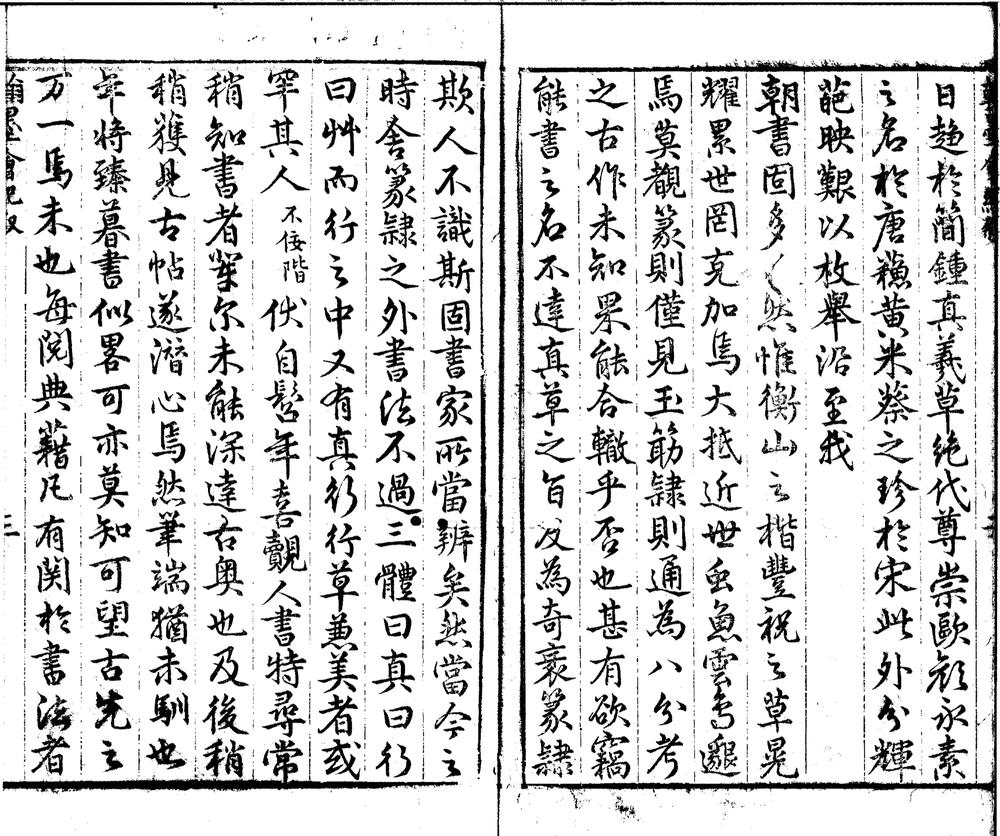 日趨於簡鍾真羲草絶代尊崇歐顔永素
之名於唐蘓黄米蔡之珍於宋此外分輝
葩映艱以枚舉沿至我
朝書固多多然惟衡山之楷豐祝之草晃
耀累世罔克加焉大抵近世虫魚雲鳥邈
焉莫覩篆則僅見玉筯隷則通為八分考
之古作未知果能合轍乎否也甚有欲竊
能書之名不達真草之旨反為奇袤篆隷
欺人不識斯固書家所當辨矣然當今之
時舍篆隷之外書法不過三體曰真曰行
曰艸而行之中又有真行行草兼美者或
罕其人不佞階伏自髫年喜觀人書特尋常
稍知書者輩尔未能深達右奥也及後稍
稍獲見古帖遂潜心焉然筆端猶未馴也
年將臻暮書似畧可亦莫知可望古先之
万一焉未也每閲典藉凡有関於書法者
翰墨會紀叙
三